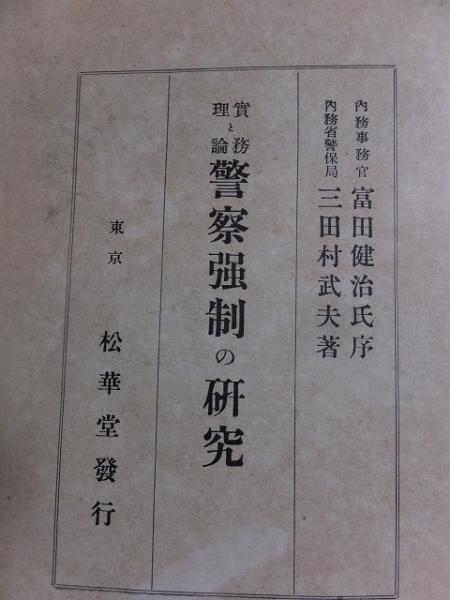 內務事務官 富田健治氏序
內務省警保局 三田村武夫著
實務と理論 警察强制の研究
東京 松華堂發行